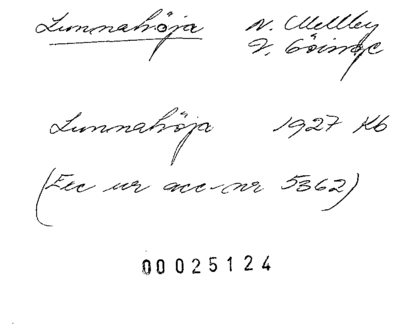 Lunnahöja N. Mellby
V. Göinge
Lunnahöja 1927 Kb
(Exc ur acc-nr 5362)
00025124